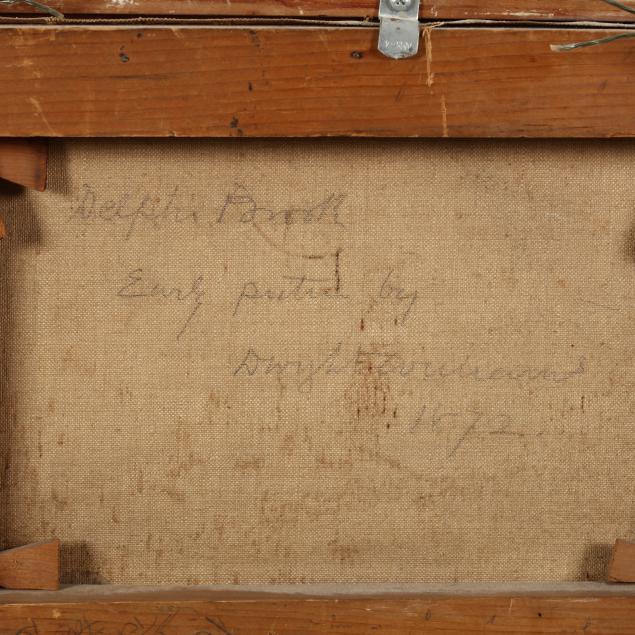 Delphi Brook
Early picture by
Dwight Williams
1872